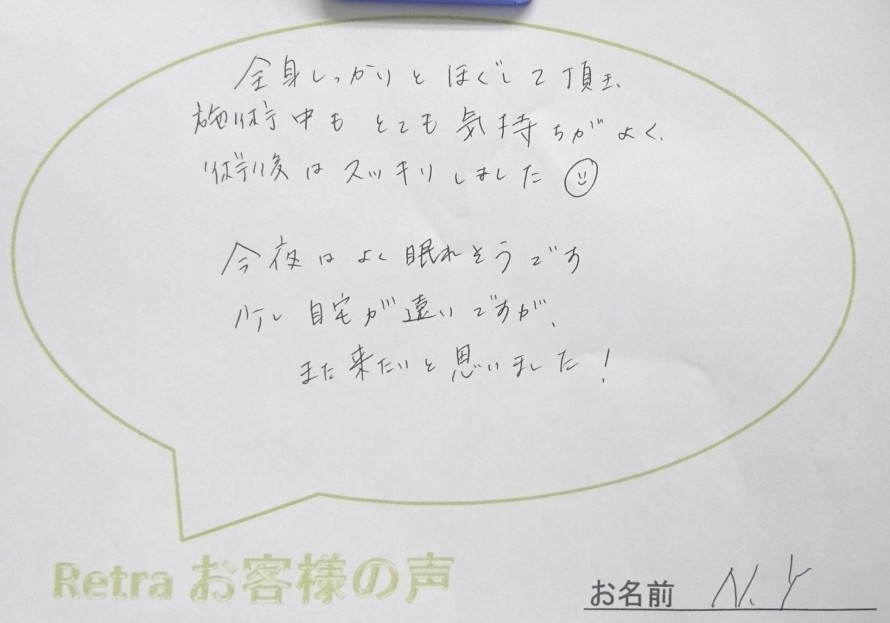 全身しっかりとほぐして頂き、
施術中もとても気持ちがよく、
術後はスッキリしました
今夜はよく眠れそうです
少し自宅が遠いですが、
また来たいと思いました！
Retra お客様の声
お名前 N.Y